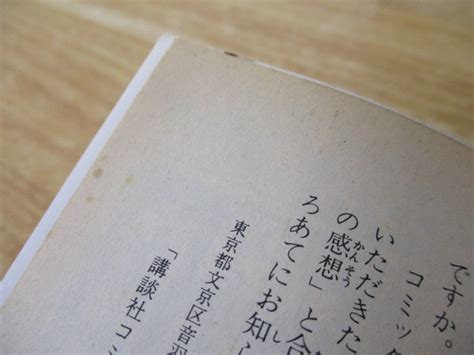 ですか。
コミッ
いただきた
の感想」と合
ろあてにお知
東京都文京区音
「講談社コミ